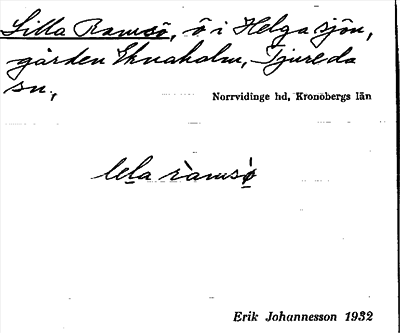 Lilla Ramsö, ö i Helgasjön,
gården Eknaholm, Tjureda
sn.,
Norrvidinge hd, Kronobergs län
lela ràmsø
Erik Johannesson 1932